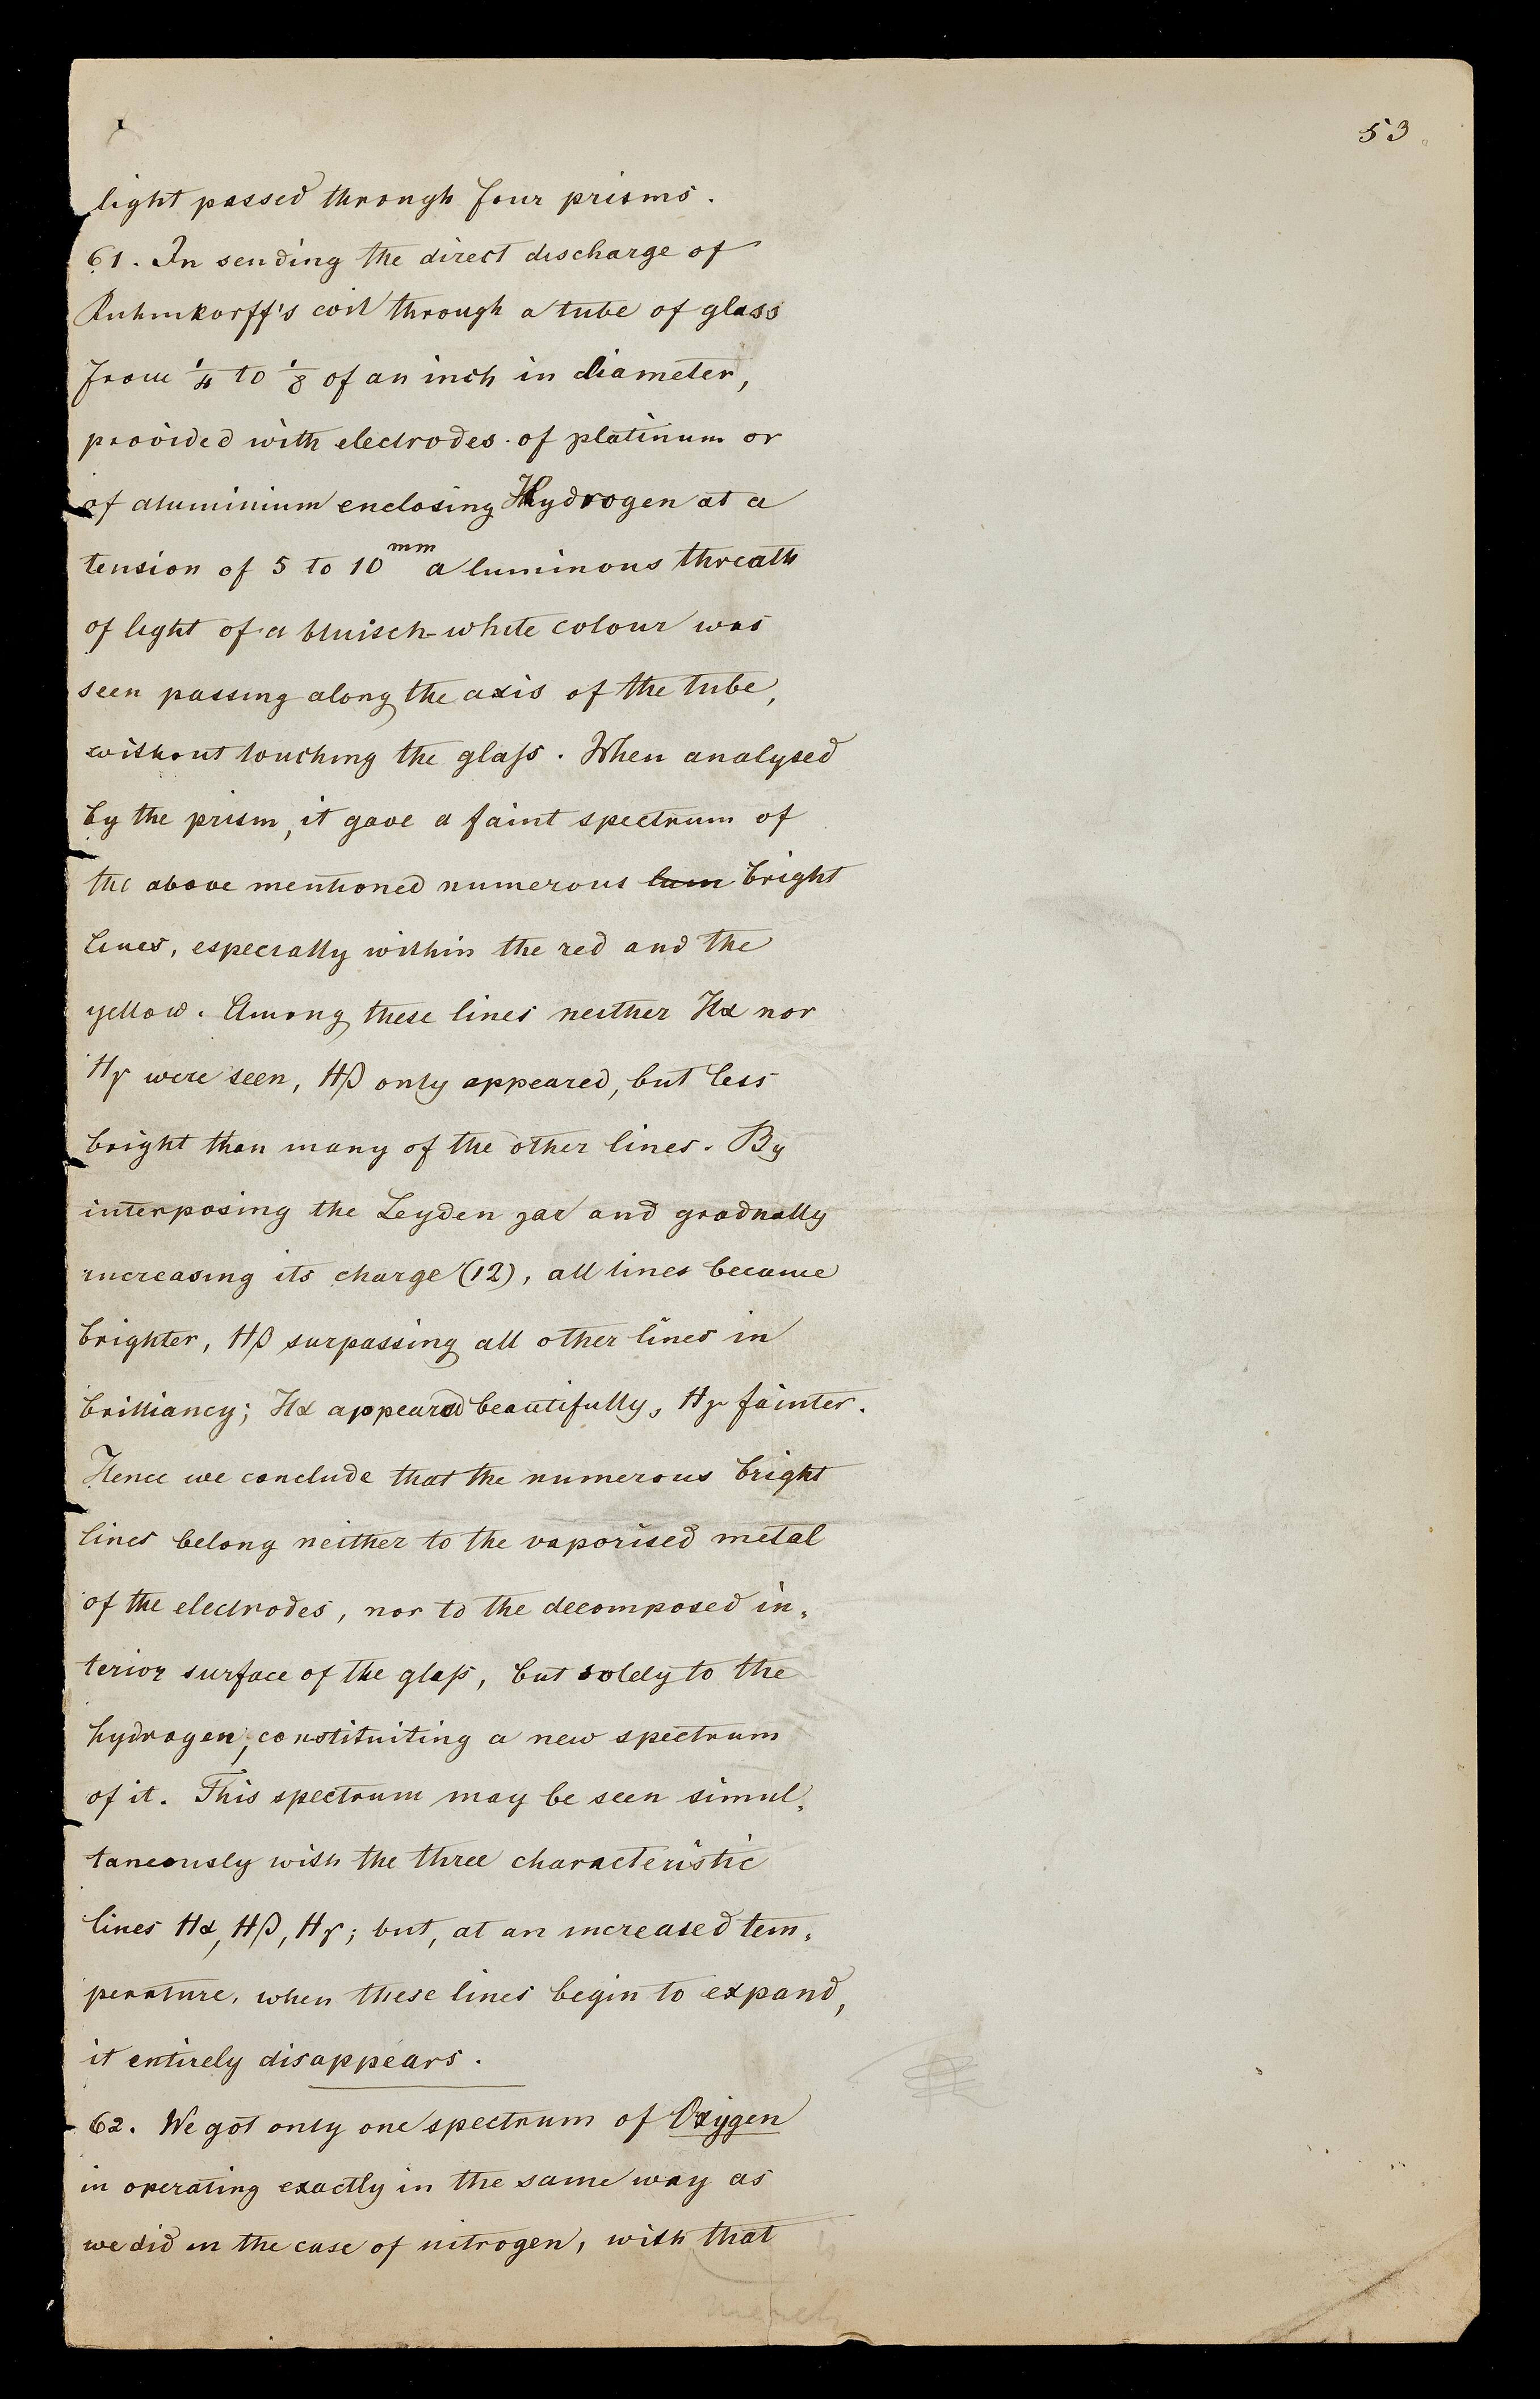 53
light passed through four prisms.
61. In sending the direct discharge of
Ruhmkorff's coil through a tube of glass
from 1/4 to 1/8 of an inch in diameter,
provided with electrodes of platinum or
of aluminium enclosing Hydrogen at a
tension of 5 to 10 mm a luminous threath
of light of a bluisch-white colour was
seen passing along the axis of the tube,
without touching the glass. When analysed
by the prism, it gave a faint spectrum of
the above mentioned numerous lum bright
lines, especially within the red and the
yellow. Among these lines neither Hα nor
Hγ were seen, Hβ only appeared, but less
bright than many of the other lines. By
interposing the Leyden jar and gradually
increasing its charge (12), all lines became
brighter, Hβ surpassing all other lines in
brilliancy; Hα appeared beautifully, Hγ fainter.
Hence we conclude that the numerous bright
lines belong neither to the vaporised metal
of the electrodes, nor to the decomposed in-
terior surface of the glass, but solely to the
hydrogen, constituiting a new spectrum
of it. This spectrum may be seen simul-
taneously with the three characteristic
lines Hα, Hβ, Hγ; but, at an increased tem-
perature, when these lines begin to expand,
it entirely disappears.
62. We got only one spectrum of Oxygen
in operating exactly in the same way as
we did in the case of nitrogen, with that